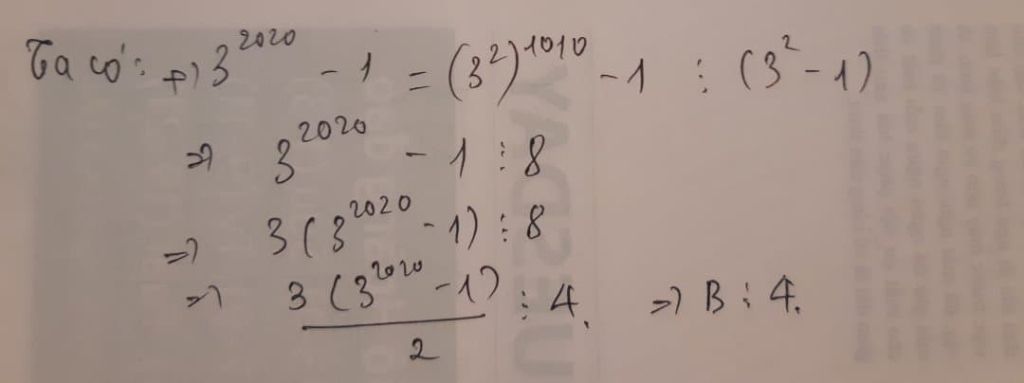 Ta có: +) 3^2020 - 1 = (3^2)^1010 - 1 ⋮ (3^2 - 1)
=> 3^2020 - 1 ⋮ 8
=> 3(3^2020 - 1) ⋮ 8
=> 3(3^2020 - 1)/2 ⋮ 4. => B ⋮ 4.